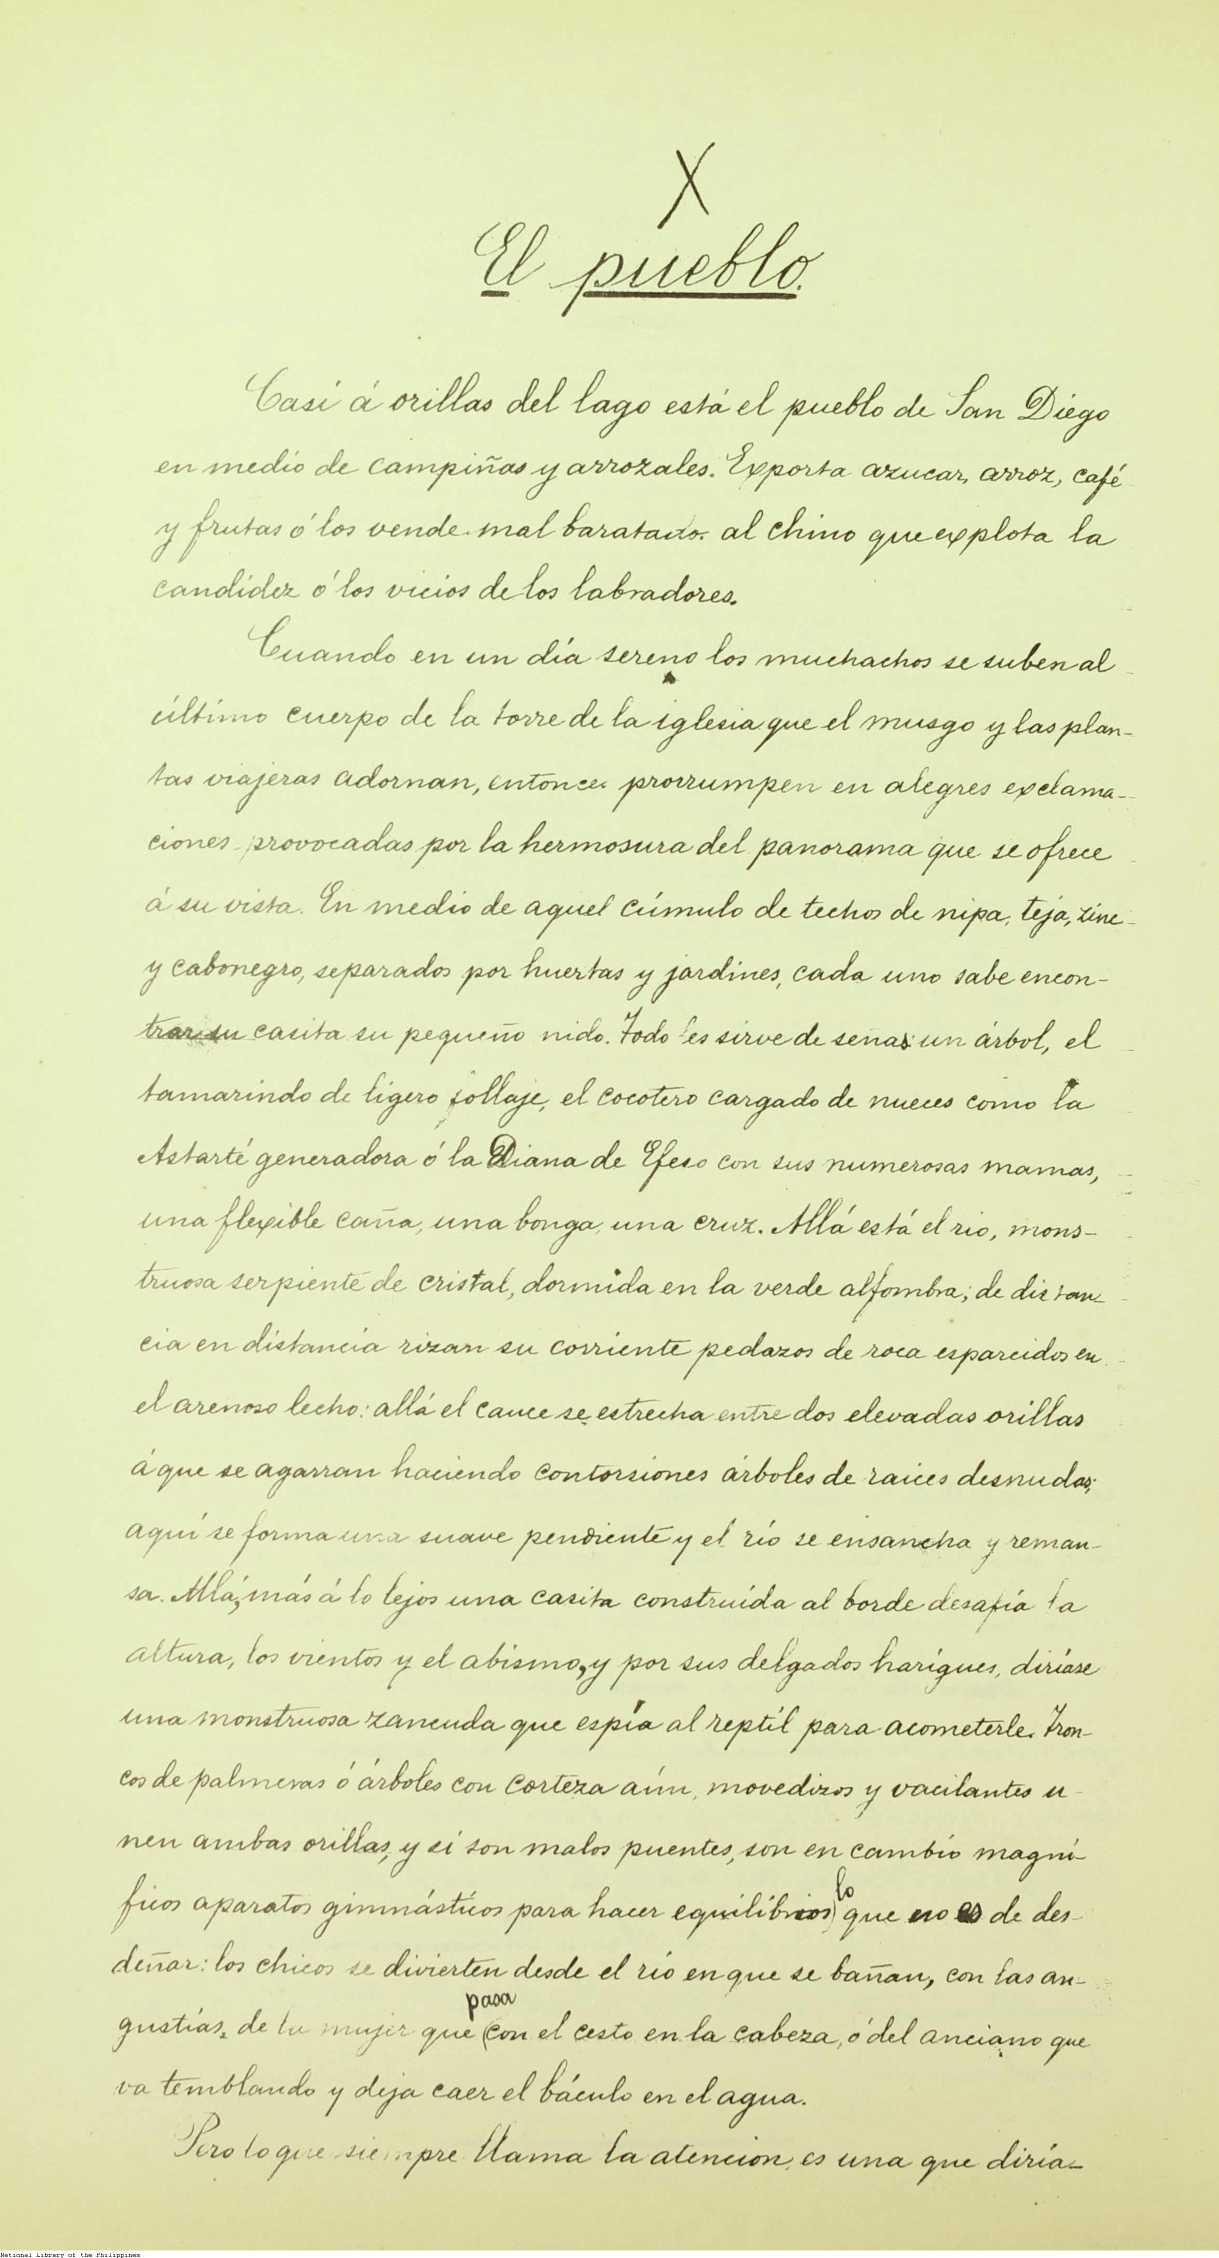 X
El pueblo.
Casi á orillas del lago está el pueblo de San Diego
en medio de campiñas y arrozales. Exporta azucar, arroz, café
y frutas ó los vende mal baratado. al chino que explota la
candidez ó los vicios de los labradores.
Cuando en un día sereno los muchachos se suben al
último cuerpo de la torre de la iglesia que el musgo y las plan-
tas viajeras adornan, entonces prorrumpen en alegres exclama-
ciones provocadas por la hermosura del panorama que se ofrece
á su vista. En medio de aquel cúmulo de techos de nipa, teja, zinc
y cabonegro, separados por huertas y jardines, cada uno sabe encon-
trar su casita su pequeño nido. Todo les sirve de señas: un árbol, el
tamarindo de ligero follaje, el cocotero cargado de nueces como la
Astarté generadora ó la Diana de Efeso con sus numerosas mamas,
una flexible caña, una bonga, una cruz. Allá está el rio, mons-
truosa serpiente de cristal, dormida en la verde alfombra; de distan-
cia en distancia rizan su corriente pedazos de roca esparcidos en
el arenoso lecho: allá el cauce se estrecha entre dos elevadas orillas
á que se agarran haciendo contorsiones árboles de raices desnudas;
aquí se forma una suave pendiente y el río se ensancha y reman-
sa. Allá, más á lo lejos una casita construída al borde desafía la
altura, los vientos y el abismo, y por sus delgados harigues, diríase
una monstruosa zancuda que espía al reptíl para acometerle. Tron-
cos de palmeras ó árboles con corteza aún, movedizos y vacilantes u-
nen ambas orillas, y si son malos puentes, son en cambio magní-
ficos aparatos gimnásticos para hacer equilibrios, lo que no es de des-
deñar: los chicos se divierten desde el río en que se bañan, con las an-
gustías, de la mujer que pasa con el cesto en la cabeza, ó del anciano que
va temblando y deja caer el báculo en el agua.
Pero lo que siempre llama la atencion es una que diría-
National Library of the Philippines